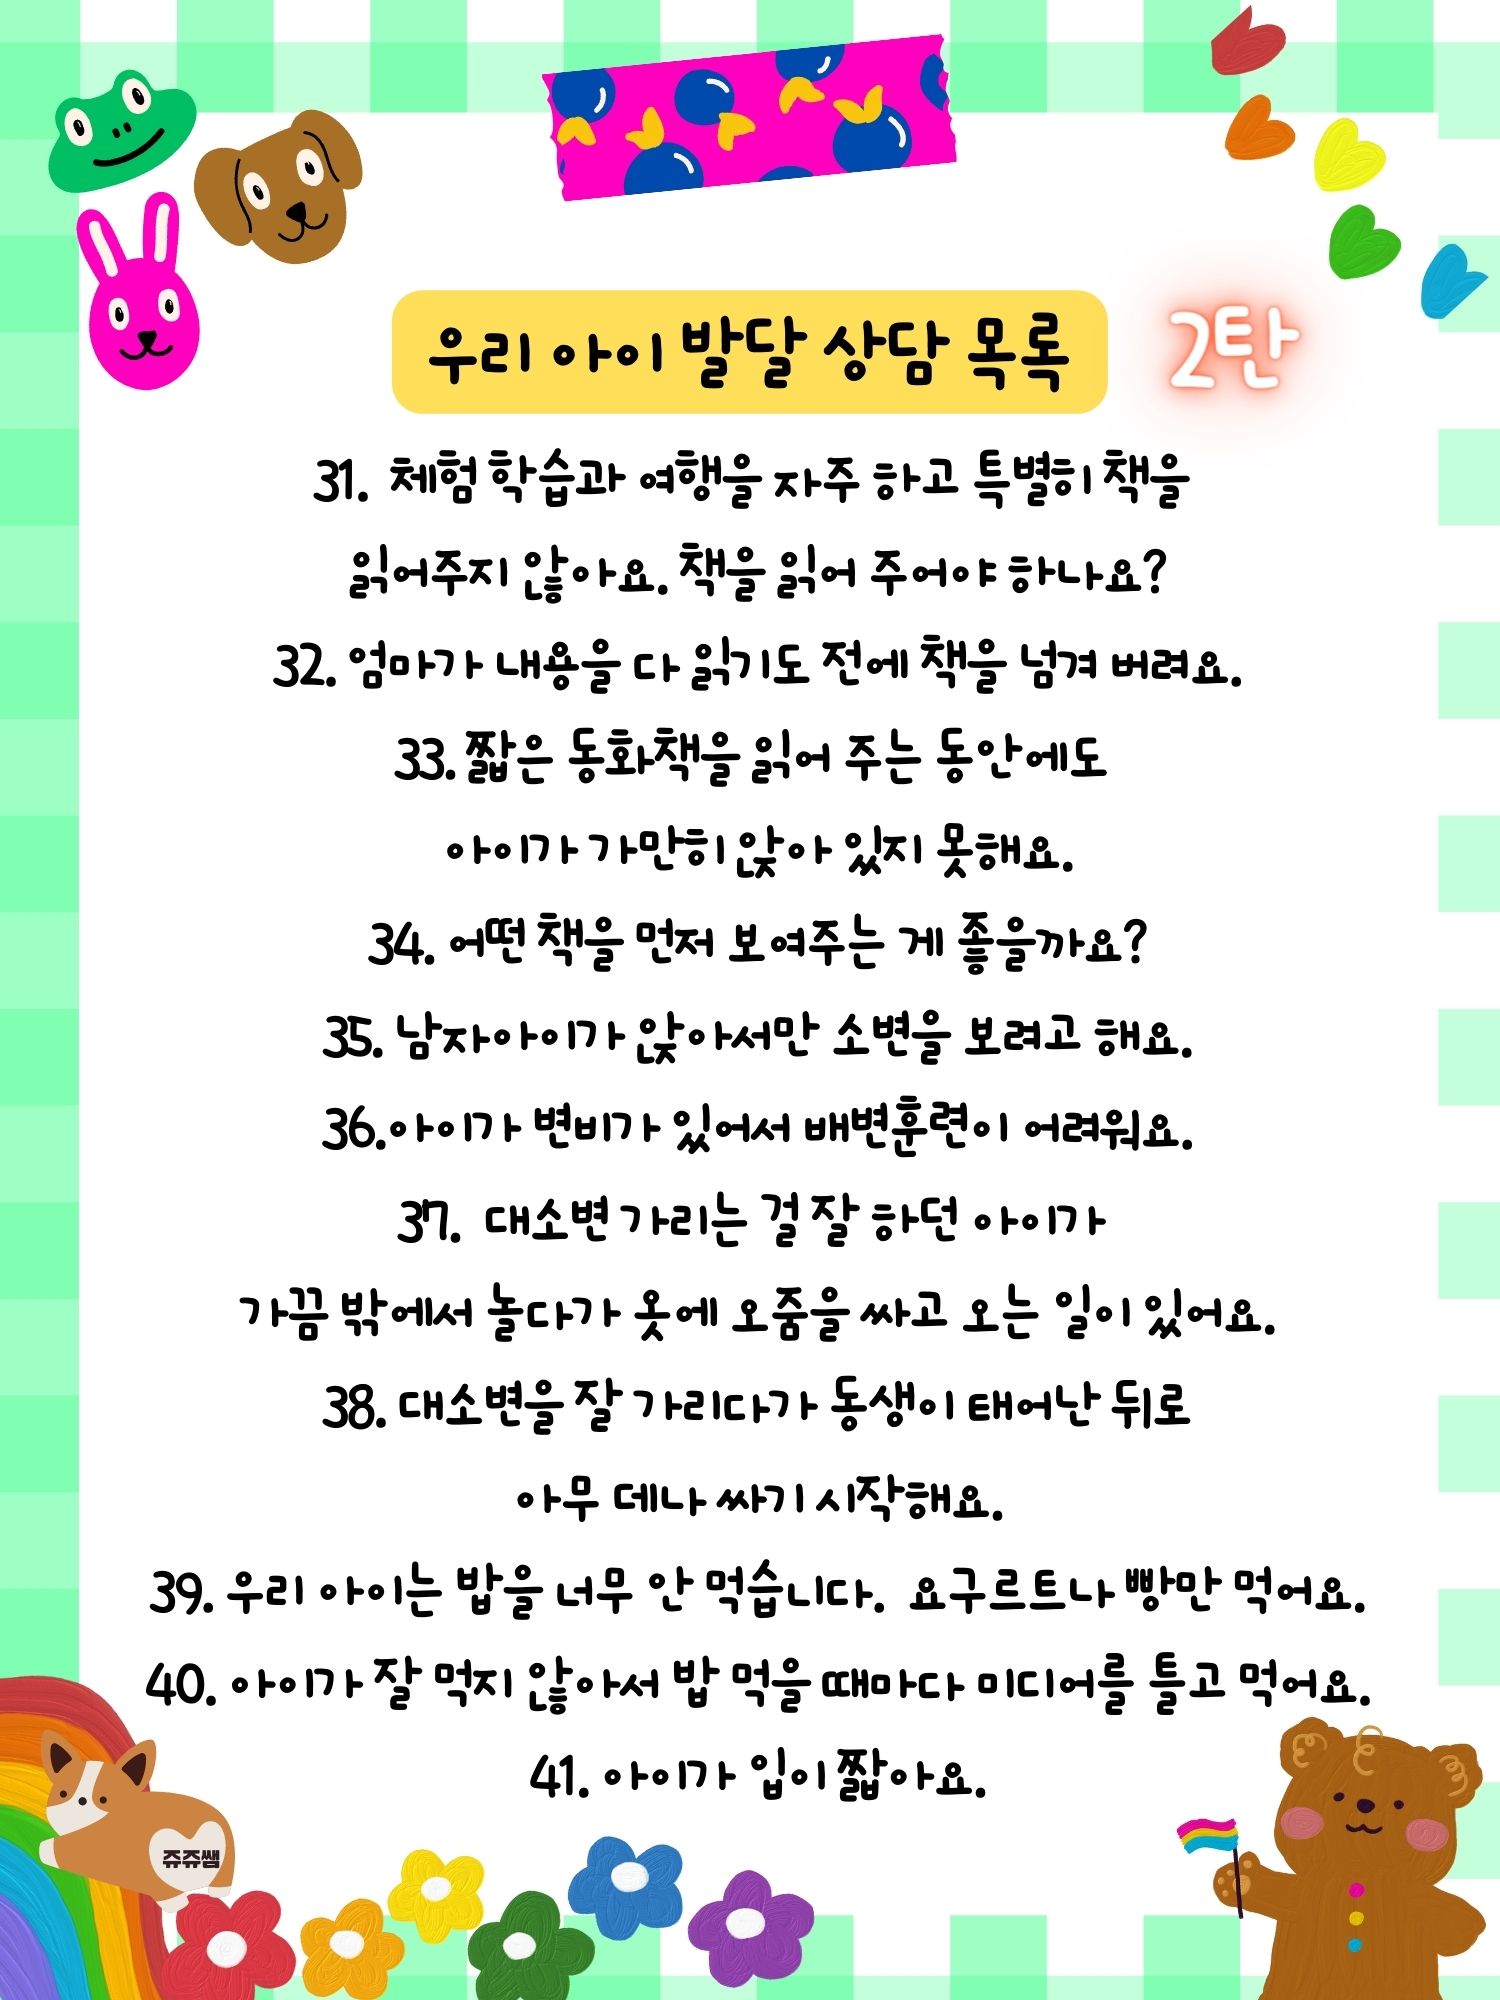 우리 아이 발달 상담 목록 2탄
31. 체험 학습과 여행을 자주 하고 특별히 책을
읽어주지 않아요. 책을 읽어 주어야 하나요?
32. 엄마가 내용을 다 읽기도 전에 책을 넘겨 버려요.
33. 짧은 동화책을 읽어 주는 동안에도
아이가 가만히 앉아 있지 못해요.
34. 어떤 책을 먼저 보여주는 게 좋을까요?
35. 남자아이가 앉아서만 소변을 보려고 해요.
36.아이가 변비가 있어서 배변훈련이 어려워요.
37. 대소변 가리는 걸 잘 하던 아이가
가끔 밖에서 놀다가 옷에 오줌을 싸고 오는 일이 있어요.
38. 대소변을 잘 가리다가 동생이 태어난 뒤로
아무 데나 싸기 시작해요.
39. 우리 아이는 밥을 너무 안 먹습니다. 요구르트나 빵만 먹어요.
40. 아이가 잘 먹지 않아서 밥 먹을 때마다 미디어를 틀고 먹어요.
41. 아이가 입이 짧아요.
쥬쥬쌤